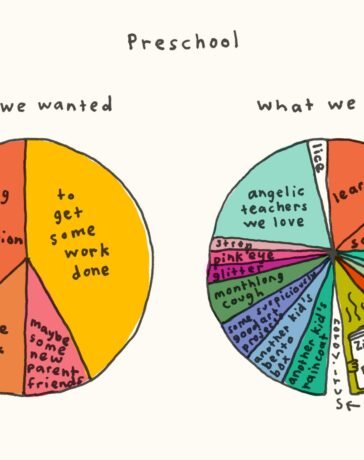 Preschool
we wanted
what we
to
get
some
work
done
maybe
some
new
parent
friends
lice
angelic
teachers
we love
strep
pink eye
glitter
monthlong
cough
some suspiciously
good art
projects
another kid's
bento
box
another kid's
raincoat
norovirus